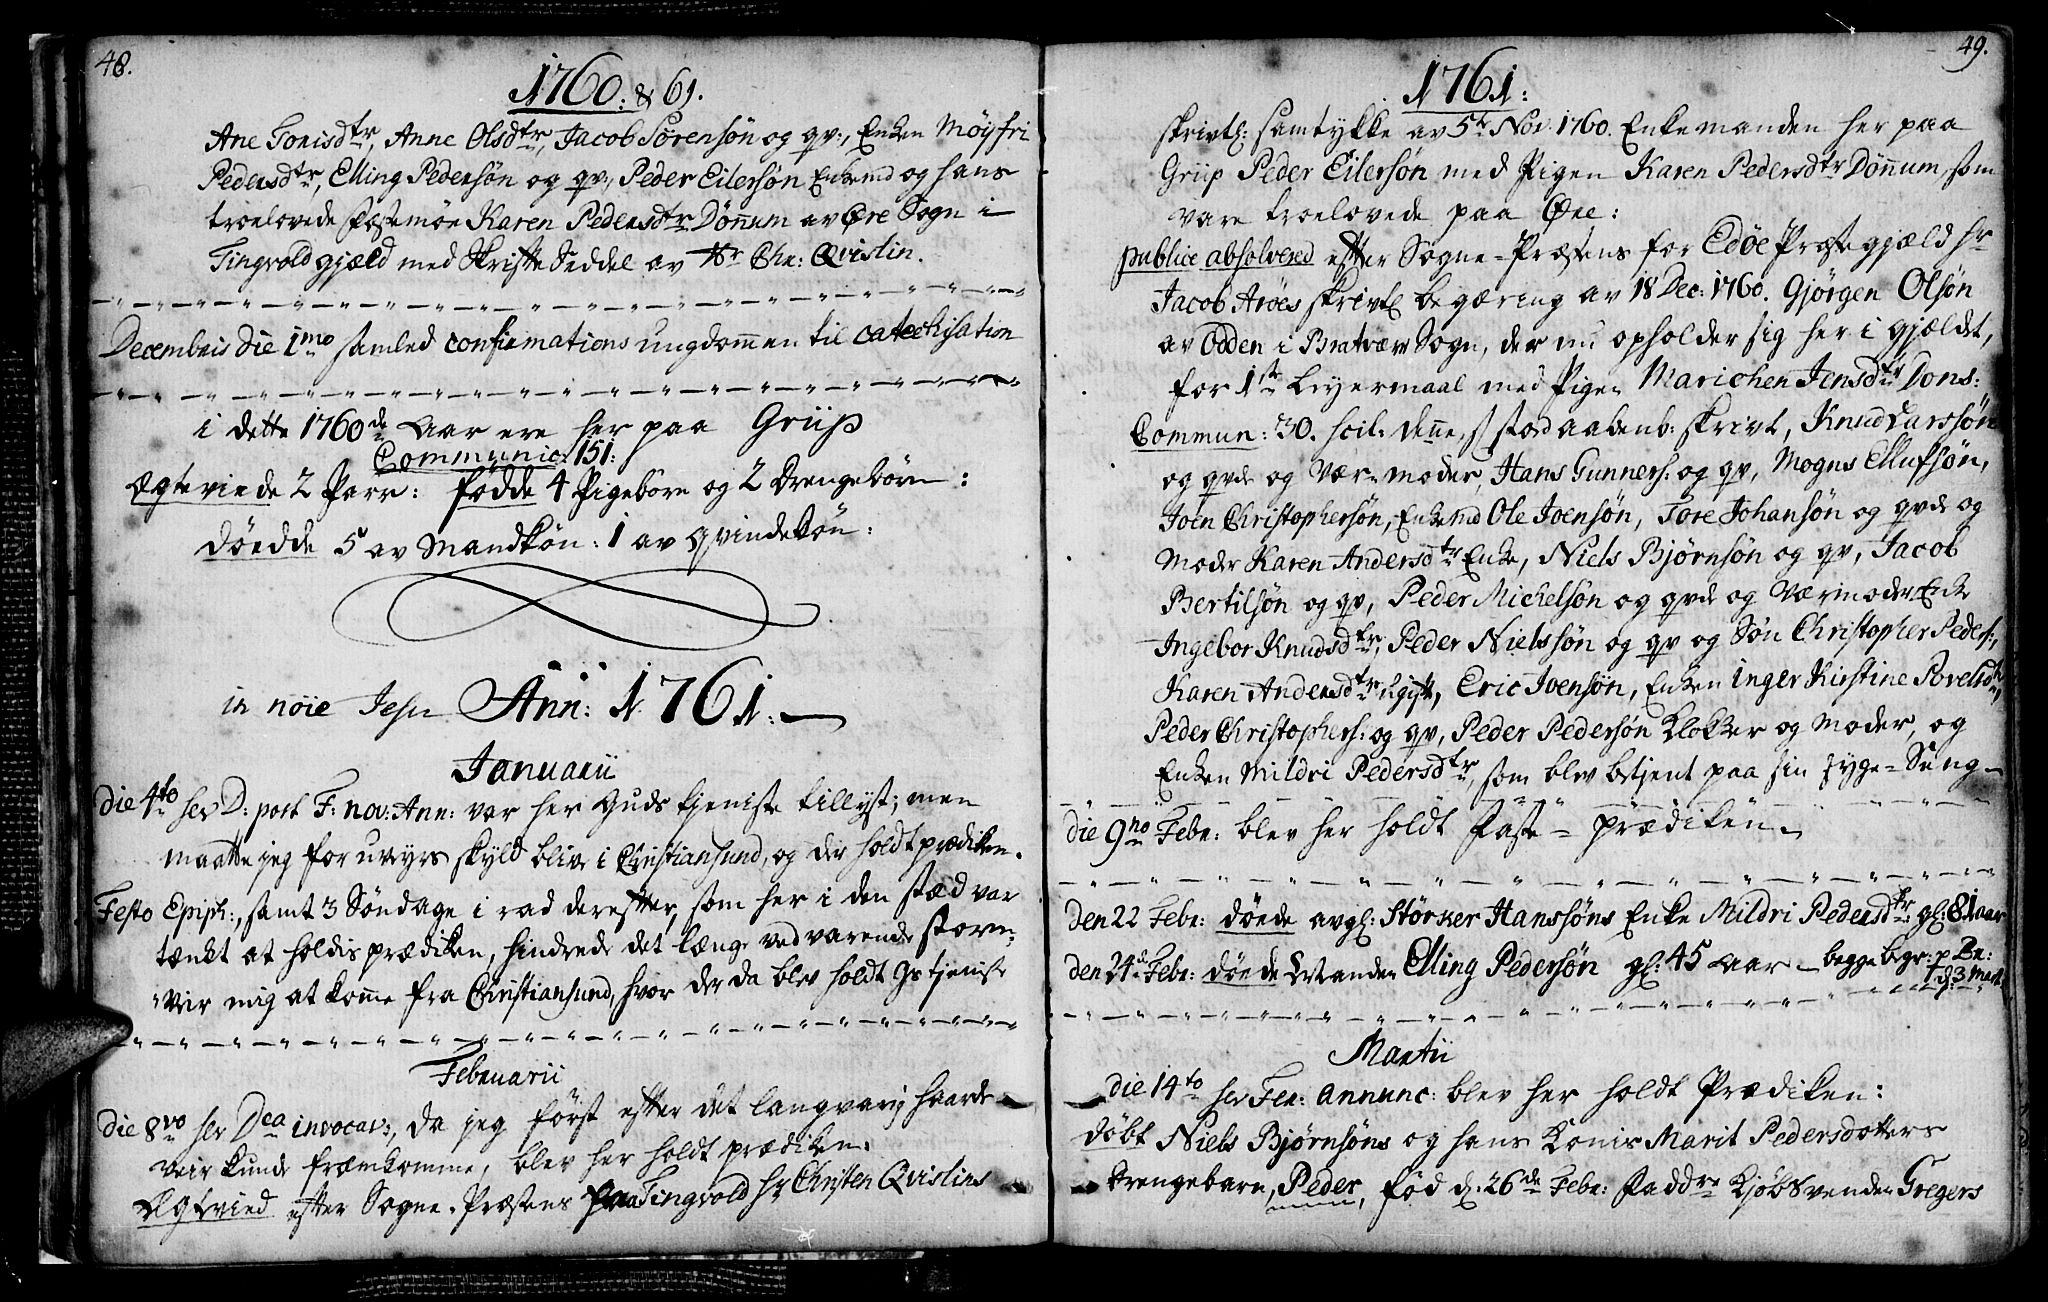 48.
1760: & 61.
Ane Tonisdtr, Anne Olsdtr, Jacob Sørensøn og qv:, Enken Møyfri
Pedersdtr, Elling Pedersøn og qv, Peder Eilersøn Enkemd og hans
troelovede Fæstemøe Karen Pedersdtr Dönum av Øre Sogn i
Tingvold gjæld med Skrifte Seddel av Hr Chr: Qvislin.
Decembris die 1mo samled confirmations ungdommen til catechisation
i dette 1760de Aar ere her paa Griip
Communic: 151:
Ægteviede 2 Parr: fødde 4 Pigebørn og 2 Drengebörn:
döedde 5 av Mandkön: 1 av qvindekön:
in nöie Jesu Ann: 1761:
Januarii
Die 4to ser D: post F: nov: Ann: var her Guds tjeniste tillyst; men
maatte jeg for uveyrs skyld blive i Christiansund, og der holdt prædiken.
Festo Epiph:, samt 3 Söndage i rad derefter, som her i den stæd var
tænkt at holdis prædiken, hindrede det længe vedvarende storm-
veir mig at komme fra Christiansund, hvor der da blev holdt Gs tjeniste
Februarii
die 8vo ser Dca invocav:, da jeg först efter det langvarig haarde
veir kunde fræmkomme, blev her holdt prædiken.
Ægtvied efter Sogne-Præstens paa Tingvold hr Christen Qvislins
49.
1761:
skrivtl: samtykke av 5te Nov. 1760. Enkemanden her paa
Griip Peder Eilersøn med Pigen Karen Pedersdtr Dönum, som
vare troelovede paa Øre:
publice absolvered efter Sogne-Præstens for Edöe Præstegjæld hr
Jacob Aröes skrivtl begæring av 18 Dec: 1760. Gjörgen Olsön
av Odden i Bratvær Sogn, der nu opholder sig her i gjældet,
for 1ste Leyermaal med Pigen Marichen Jensdtr Dons:
Commun: 30. scil: denne, st stod aabenb: skrivt, Knud Larssøn
og qvde og Vær-moder, Hans Gunners: og qv, Mogns Ellufsøn,
Joen Christophersøn, Enkemd Ole Joensøn, Tore Johansøn og qvde og
moder Karen Andersdtr Enke, Niels Bjørnsøn og qv, Jacob
Bertilsøn og qv, Peder Michelsøn og qvde og Værmoder Enke
Ingebor Knudsdtr, Peder Nielssøn og qv og Søn Christopher Peders:,
Karen Andersdtr ugift, Eric Ivensøn, Enken Inger Kirstine Povelsdtr,
Peder Christophers: og qv, Peder Pedersøn Klokker og Moder, og
Enken Mildri Pedersdtr, som blev betjent paa sin syge-Seng
die 9no Febr: blev her holdt Faste-prædiken
den 22 Febr: döede avgl: Störker Hanssøns Enke Mildri Pedersdtr gl: 81 aar
den 24de Febr: döede Ætmanden Elling Pedersøn gl: 45 aar begge begr: p Be:
d: 3 Mart:
Martii
die 14to ser Fer: annunc: blev her holdt Prædiken:
döbt Niels Bjørnsøns og hans Konis Marit Pedersdotters
drengebarn, Peder, föd d: 26de Febr: Faddre Kjöbsvenden Gregers